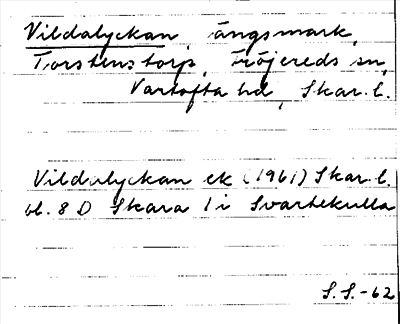 Vildalyckan, ängsmark,
Torstenstorp, Fröjereds sn,
Vartofta hd, Skar. l.
Vildalyckan ek (1961) Skar. l.
bl. 8 D Skara 1 i Svartekulla
S.S.-62